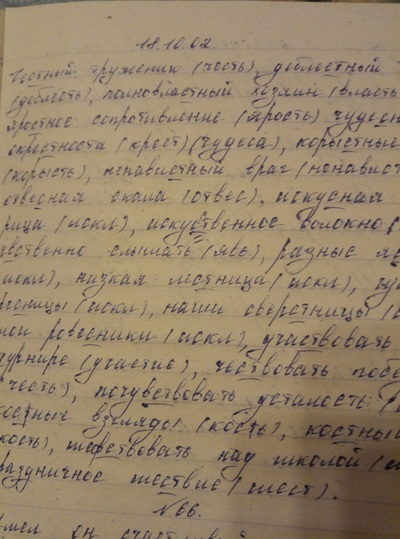 18.10.02.
Честный труженик (честь), доблестный
(доблесть), полновластный хозяин (власть
яростное сопротивление (ярость) чудесн
окрестности (крест) (чудеса), корыстные
(корысть), ненавистный враг (ненавист
отвесная скала (отвес), искусная
рица (искл), искусственное волокно (
явственно слышать (явь), разные ле
(искл), низкая лестница (искл),
ресницы (искл), наши сверстницы (
мои ровесники (искл), участвовать
турнире (участие), чествовать побе
(честь), почувствовать усталость (
косные взгляды (кость), костный
кость), шефствовать над школой (
праздничное шествие (шест).
№66.
он счастливой